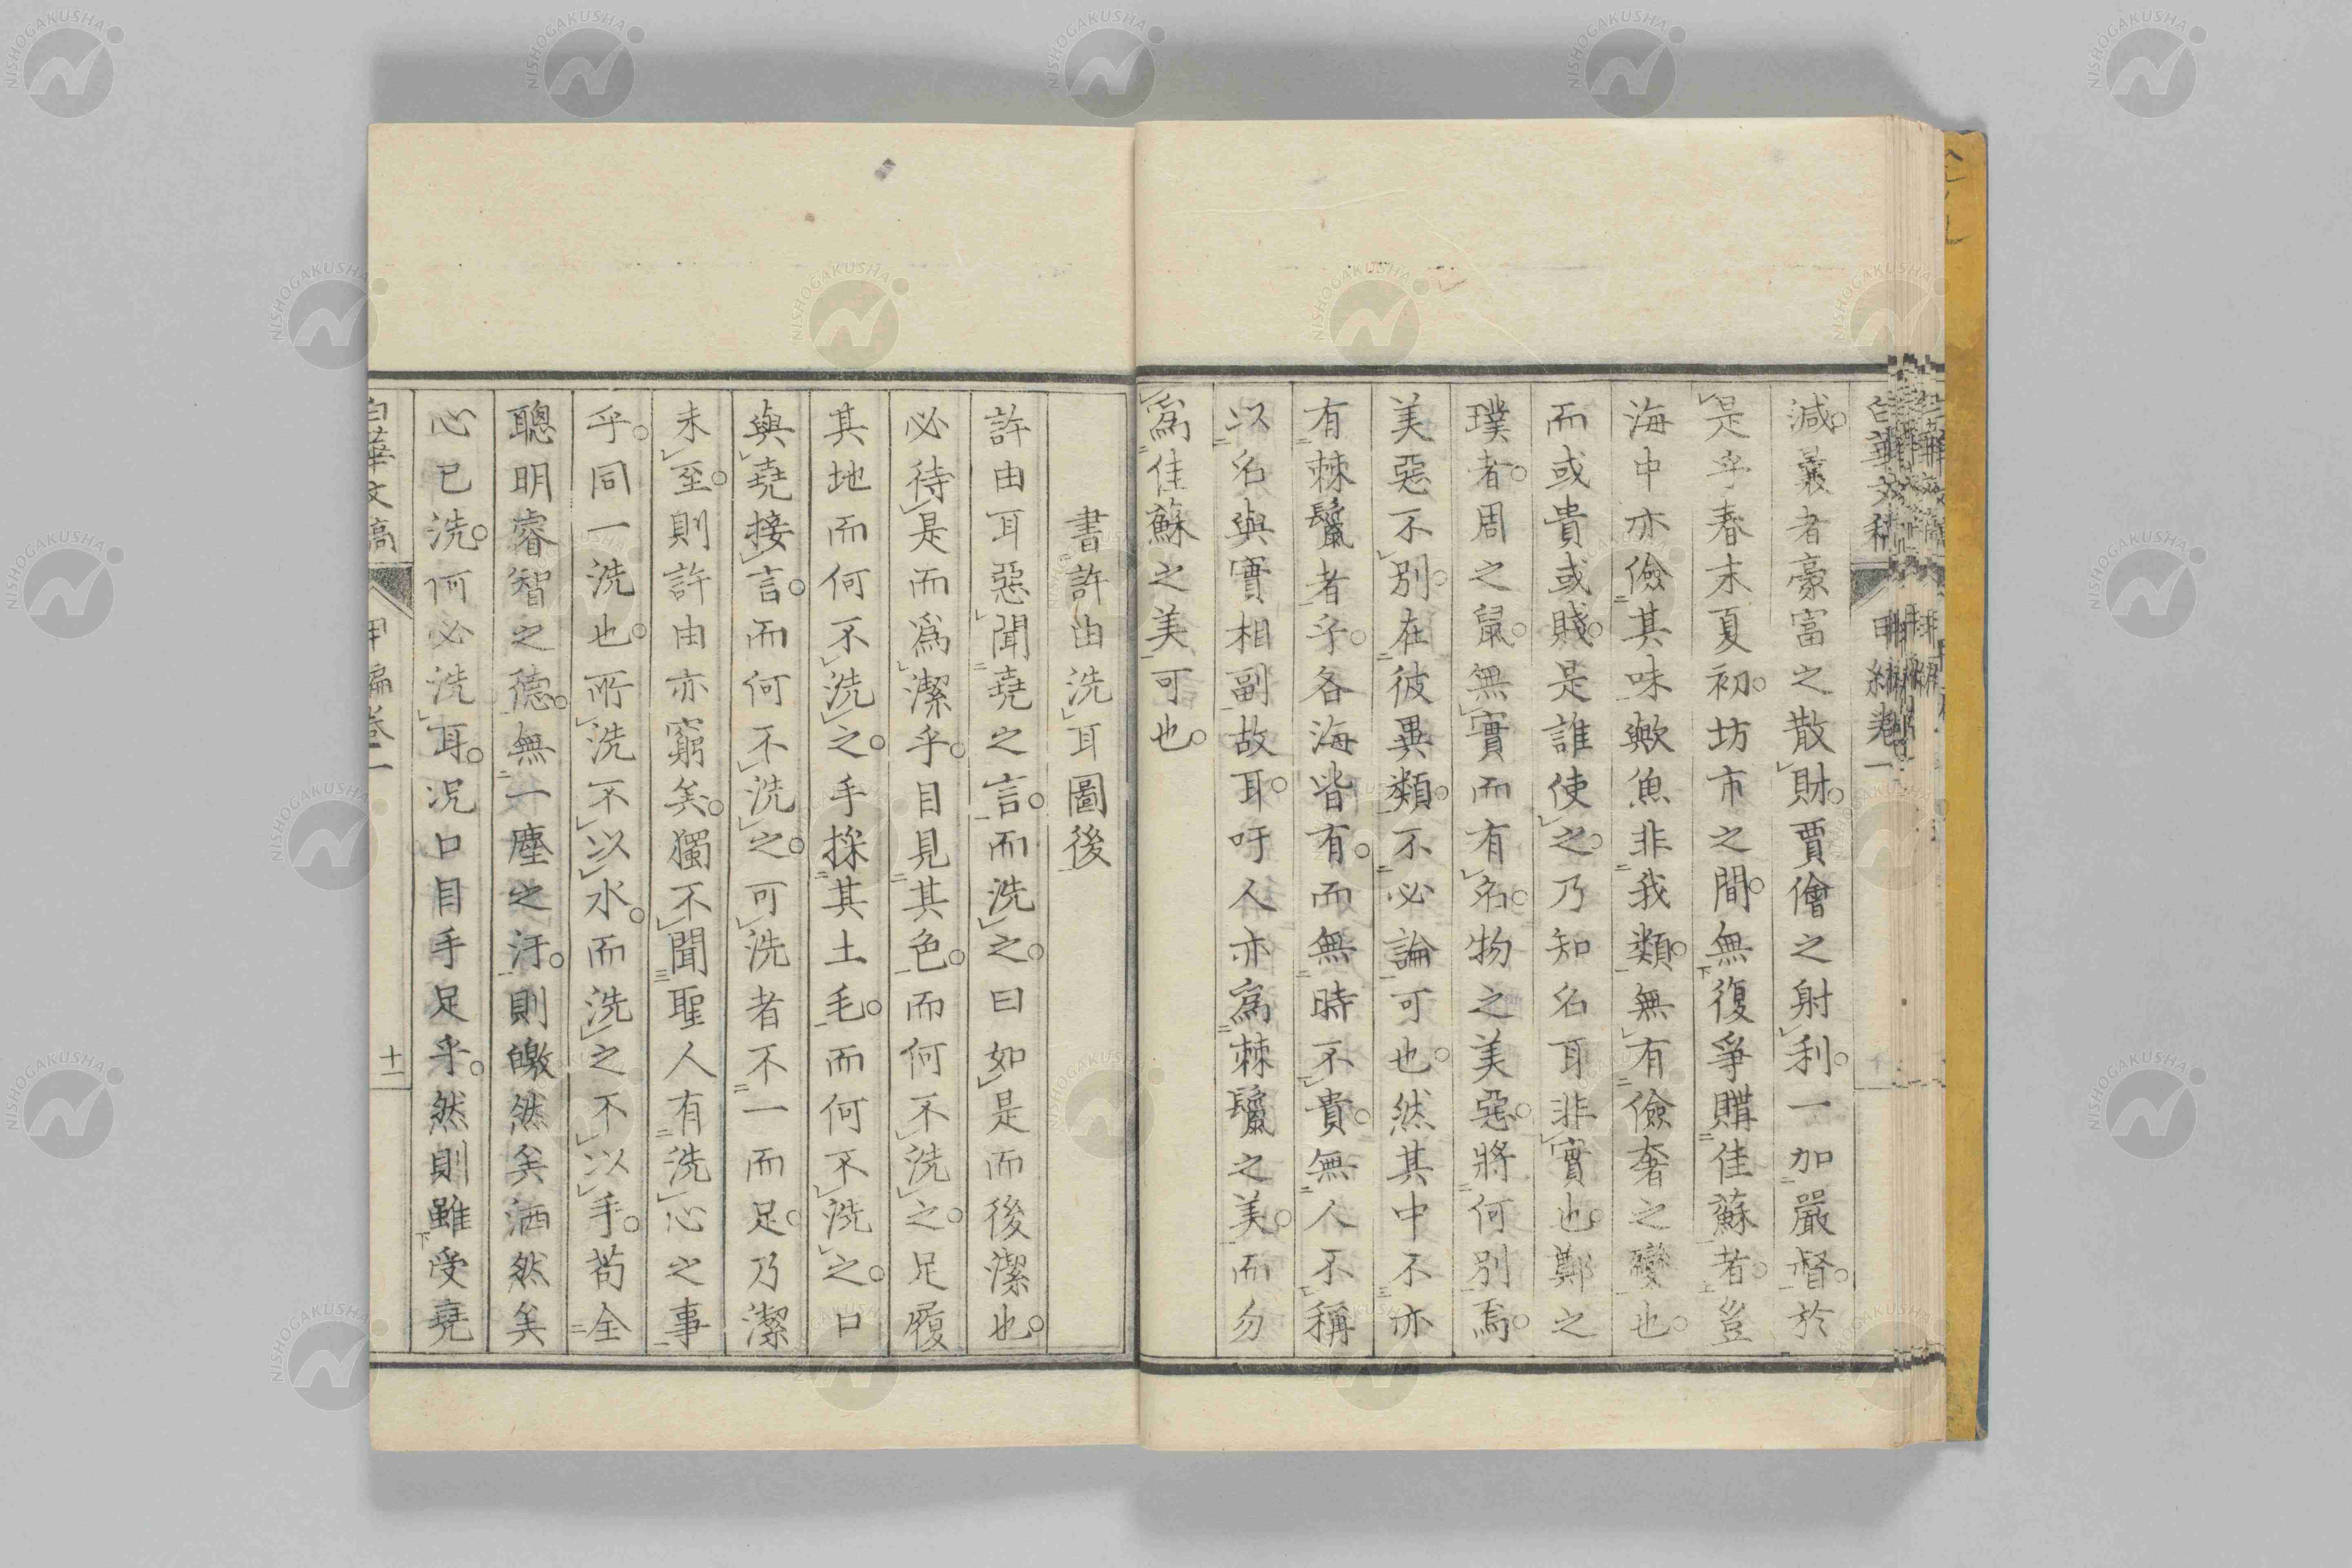 減曩者豪富之散財賈儈之射利一加嚴督於
是乎春末夏初坊市之間無復爭購佳蘇者豈
海中亦儉其味歟魚非我類無有儉奢之變也
而或貴或賤是誰使之乃知名耳非實也鄭之
璞者周之鼠無實而有名物之美惡將何別焉
美惡不別在彼異類不必論可也然其中不亦
有棘鬣者乎各海皆有而無時不貴無人不稱
以名與實相副故耳吁人亦爲棘鬣之美而勿
爲佳蘇之美可也
書許由洗耳圖後
許由耳惡聞堯之言而洗之曰如是而後潔也
必待是而爲潔乎目見其色而何不洗之足履
其地而何不洗之手採其土毛而何不洗之口
與堯接言而何不洗之可洗者不一而足乃潔
未至則許由亦窮矣獨不聞聖人有洗心之事
乎同一洗也所洗不以水而洗之不以手苟全
聰明睿智之德無一塵之汙則皦然矣洒然矣
心已洗何必洗耳況口目手足乎然則雖受堯
白華文稿 甲編卷一 十一
NISHOGAKUSHA